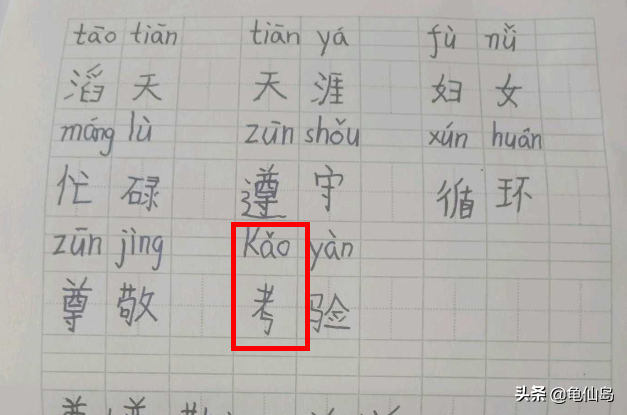 tāo tiān tiān yá fù nǚ
滔 天 天 涯 妇 女
máng lù zūn shǒu xún huán
忙 碌 遵 守 循 环
zūn jìng kǎo yàn
尊 敬 考 验
头条 @龟仙岛